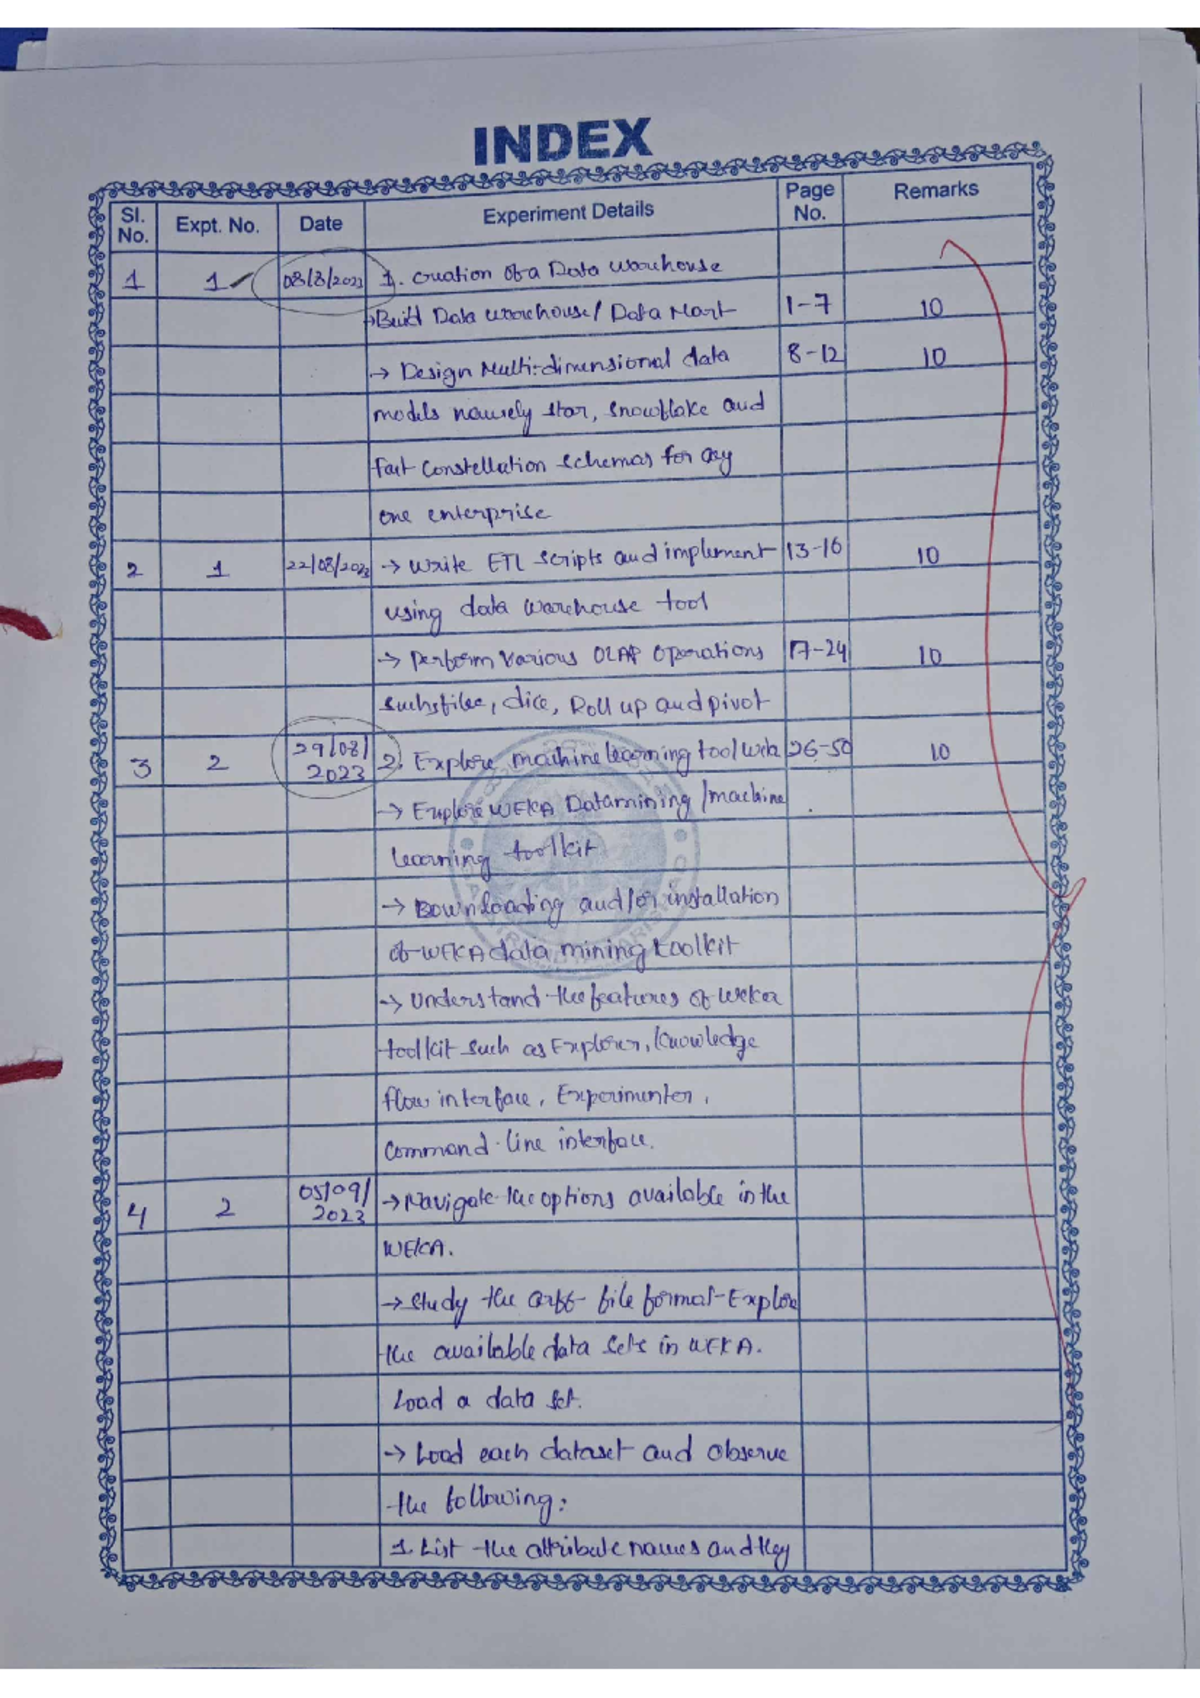 INDEX
Sl. No. Expt. No. Date Experiment Details Page No. Remarks
1 1 08/8/2023 1. Creation of a Data Warehouse
→Build Data warehouse/ Data Mart 1-7 10
→ Design Multi-dimensional data 8-12 10
models namely star, snowflake and
Fact Constellation schemas for any
one enterprise
2 1 22/08/2023 → Write ETL scripts and implement 13-16 10
using data warehouse tool
→ Perform Various OLAP Operations 17-24 10
such slice, dice, Roll up and pivot
3 2 29/08/2023 2. Explore machine learning tool weka 26-50 10
→ Explore WEKA Datamining /machine
learning toolkit
→ Downloading and/or installation
of WEKA data mining toolkit
→ Understand the features of weka
toolkit such as Explorer, Knowledge
flow interface, Experimenter,
command-line interface.
4 2 05/09/2023 → Navigate the options available in the
WEKA.
→ Study the arff file format Explore
the available data sets in WEKA.
Load a data set.
→ Load each dataset and observe
the following:
1. List the attribute names and they